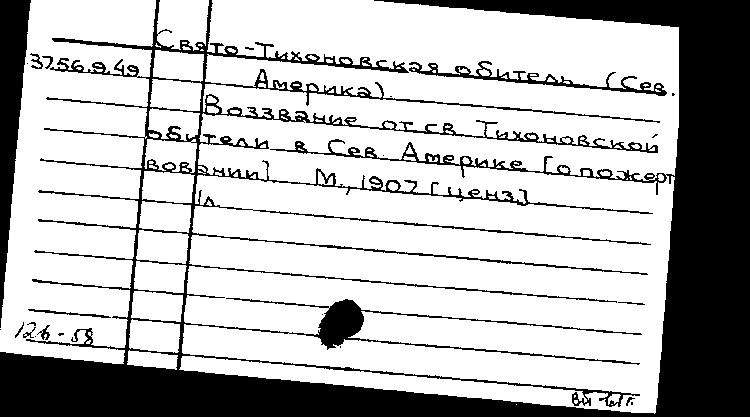 Свято-Тихоновская обитель (Сев.
37.56.9.49
Америка).
Воззвание от св. Тихоновской
обители в Сев. Америке [о пожерт
вовании]. М., 1907 [ценз.]
1 л.
126-58